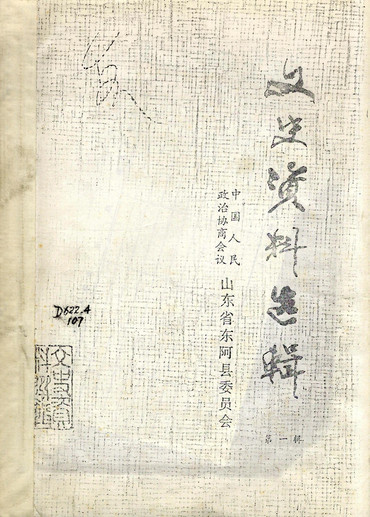 文史资料选辑
中国人民
政治协商会议
山东省东阿县委员会
第一辑
D622.4
107